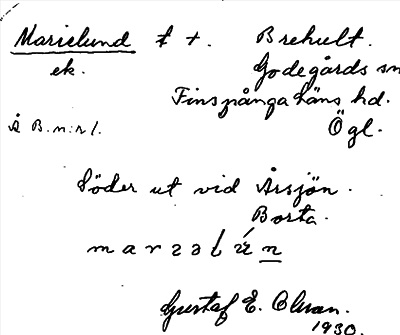 Marielund ⨎ +. Brehult.
ek. Godegårds sn
Finspånga läns hd.
Å B.n:r 1. Ögl.
Söder ut vid Årsjön.
Borta.
marɜəlún
Gustaf E. Olsson.
1930.